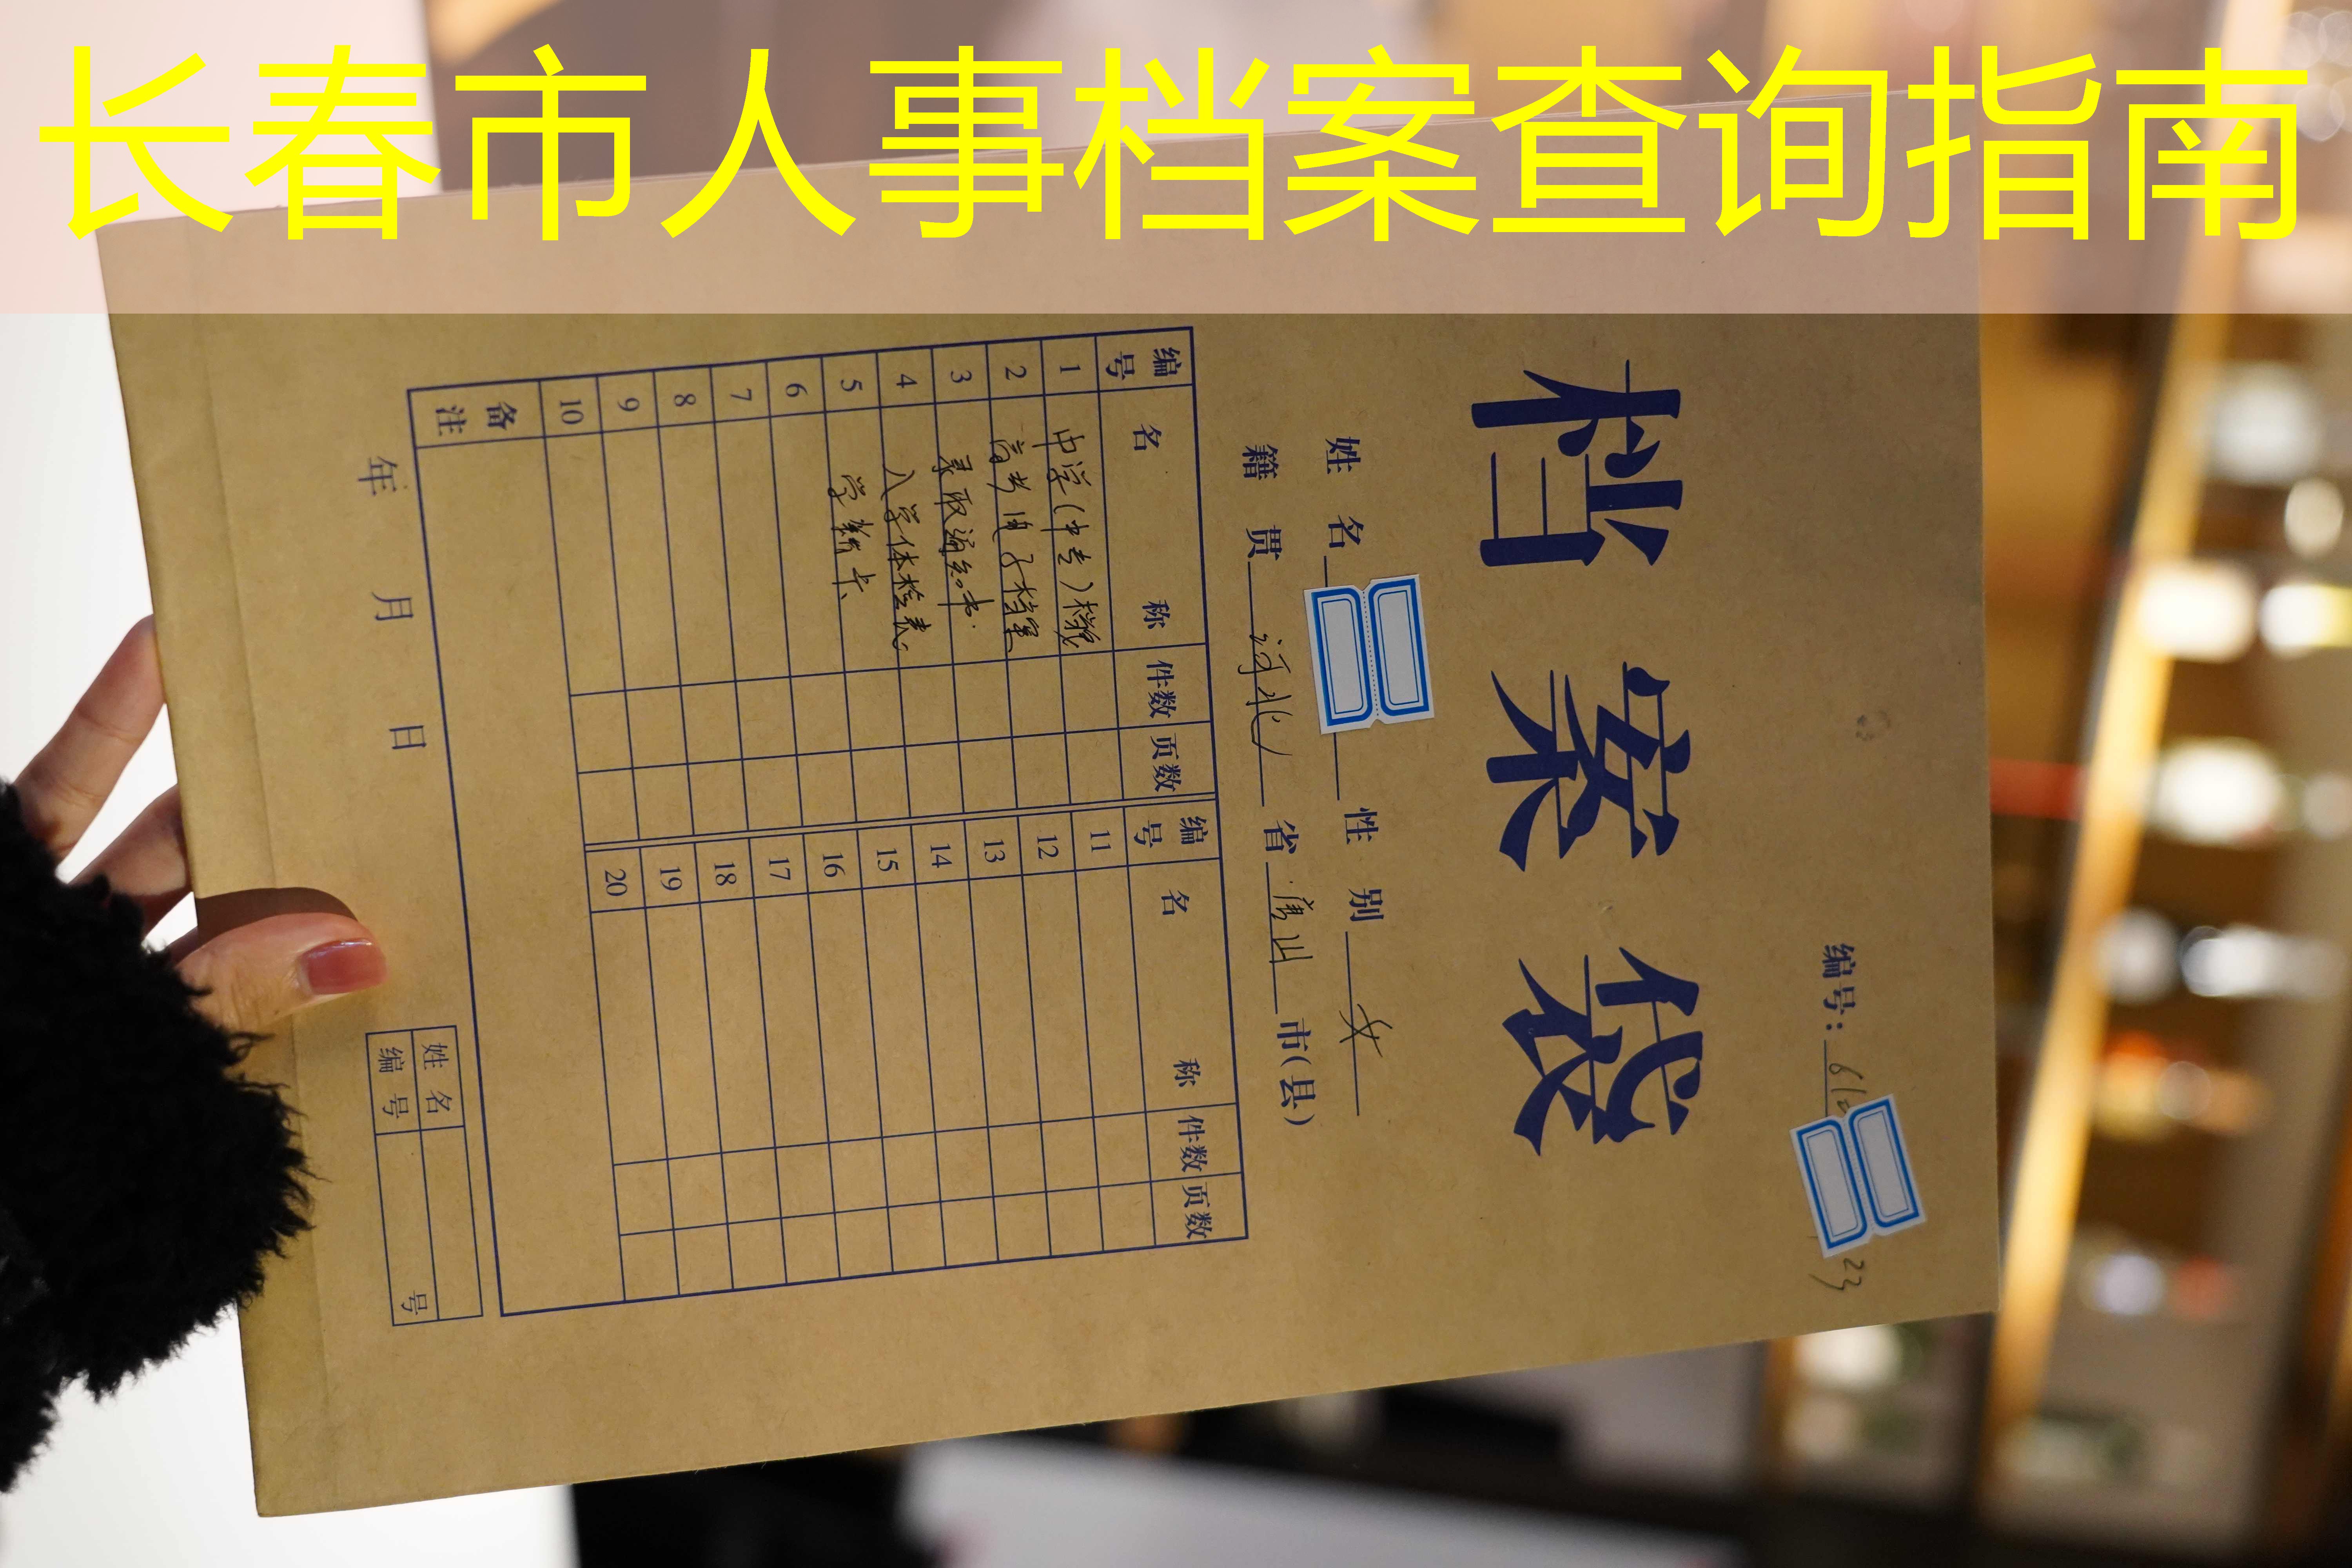 长春市人事档案查询指南
编号: 612 23
档案袋
姓名 性别 女
籍贯 河北 省 唐山 市(县)
编号 名称 件数 页数 编号 名称 件数 页数
1 中学(中专)档案 11
2 高考电子档案 12
3 录取通知书 13
4 入学体检表 14
5 学籍卡 15
6 16
7 17
8 18
9 19
10 20
备注
年 月 日
姓名
编号 号